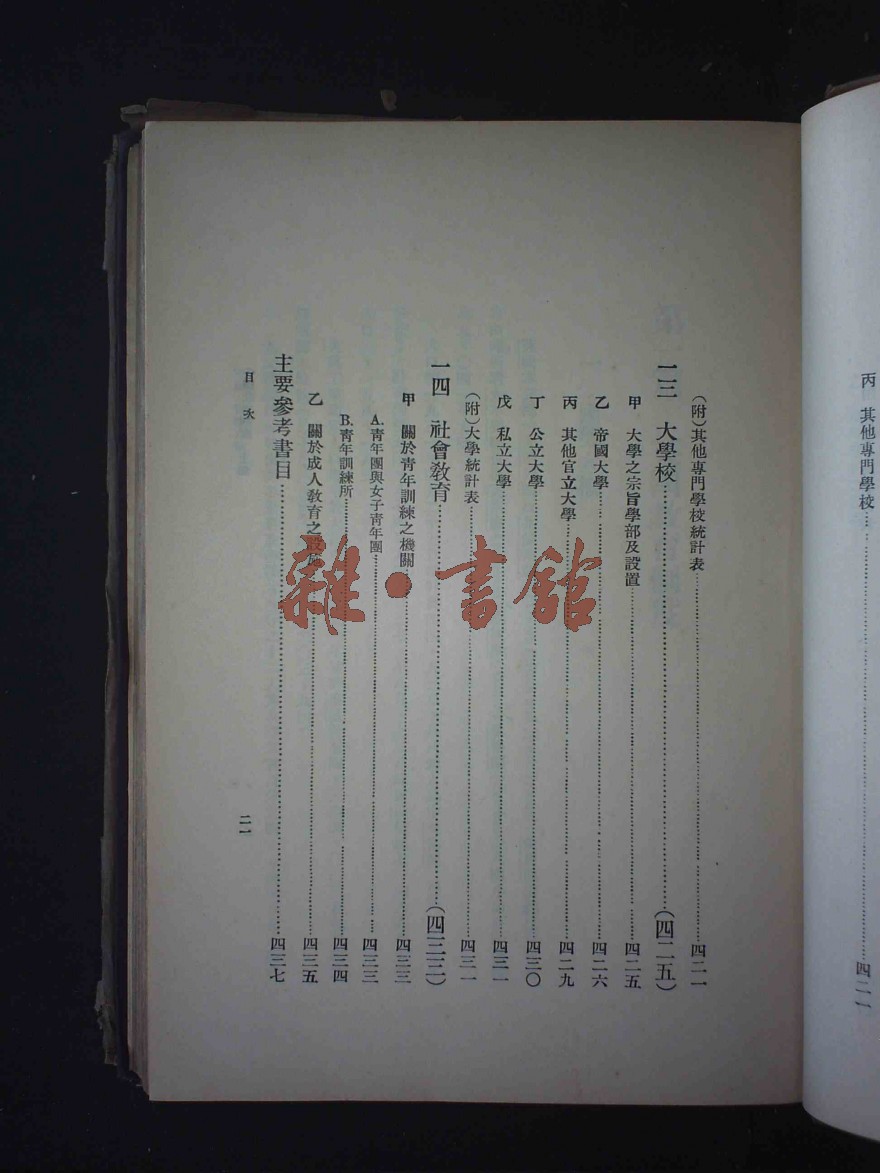 丙　其他專門學校……四二一
（附）其他專門學校統計表……四二一
一三　大學校……（四二五）
甲　大學之宗旨學部及設置……四二五
乙　帝國大學……四二六
丙　其他官立大學……四二九
丁　公立大學……四三〇
戊　私立大學……四三一
（附）大學統計表……四三一
一四　社會教育……（四三三）
甲　關於青年訓練之機關……四三三
A.青年團與女子青年團……四三三
B.青年訓練所……四三四
乙　關於成人教育之設施……四三五
主要參考書目……四三七
目次　二一
雜・書館